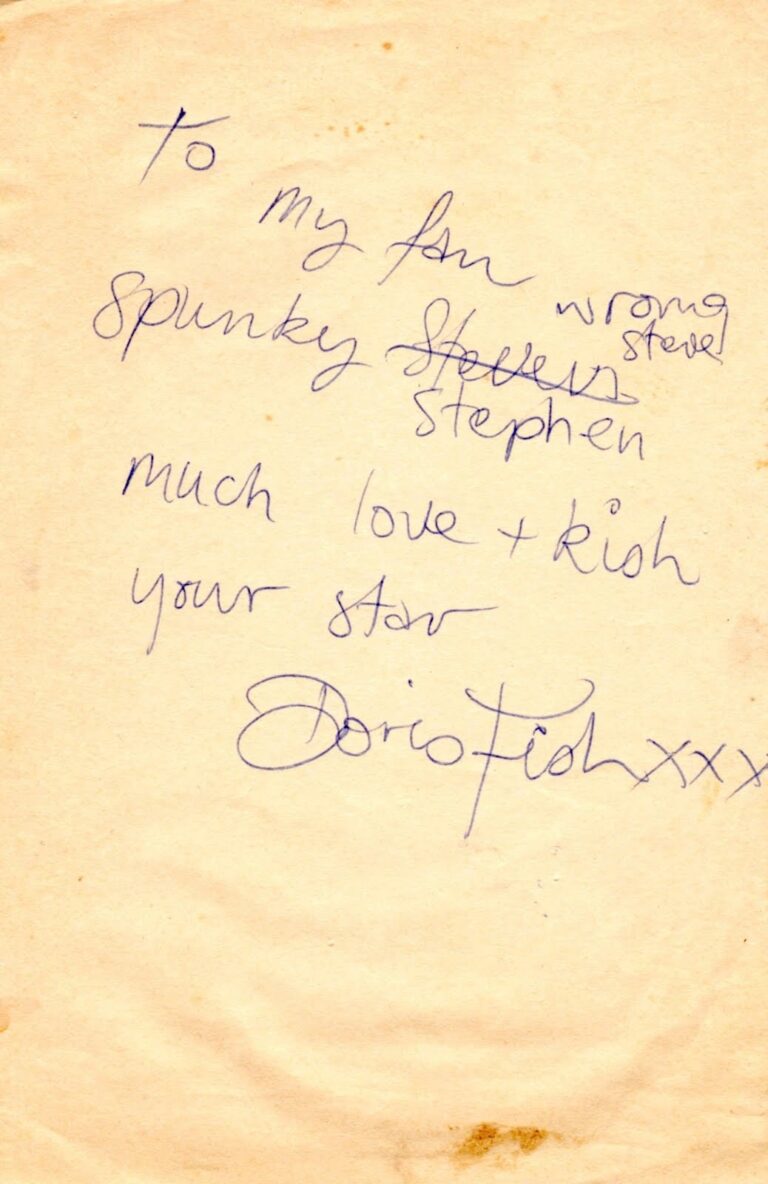 To
my fan
wrong
Spunky Stevens
steve!
Stephen
much love + kish
your star
Doris Fish xxx